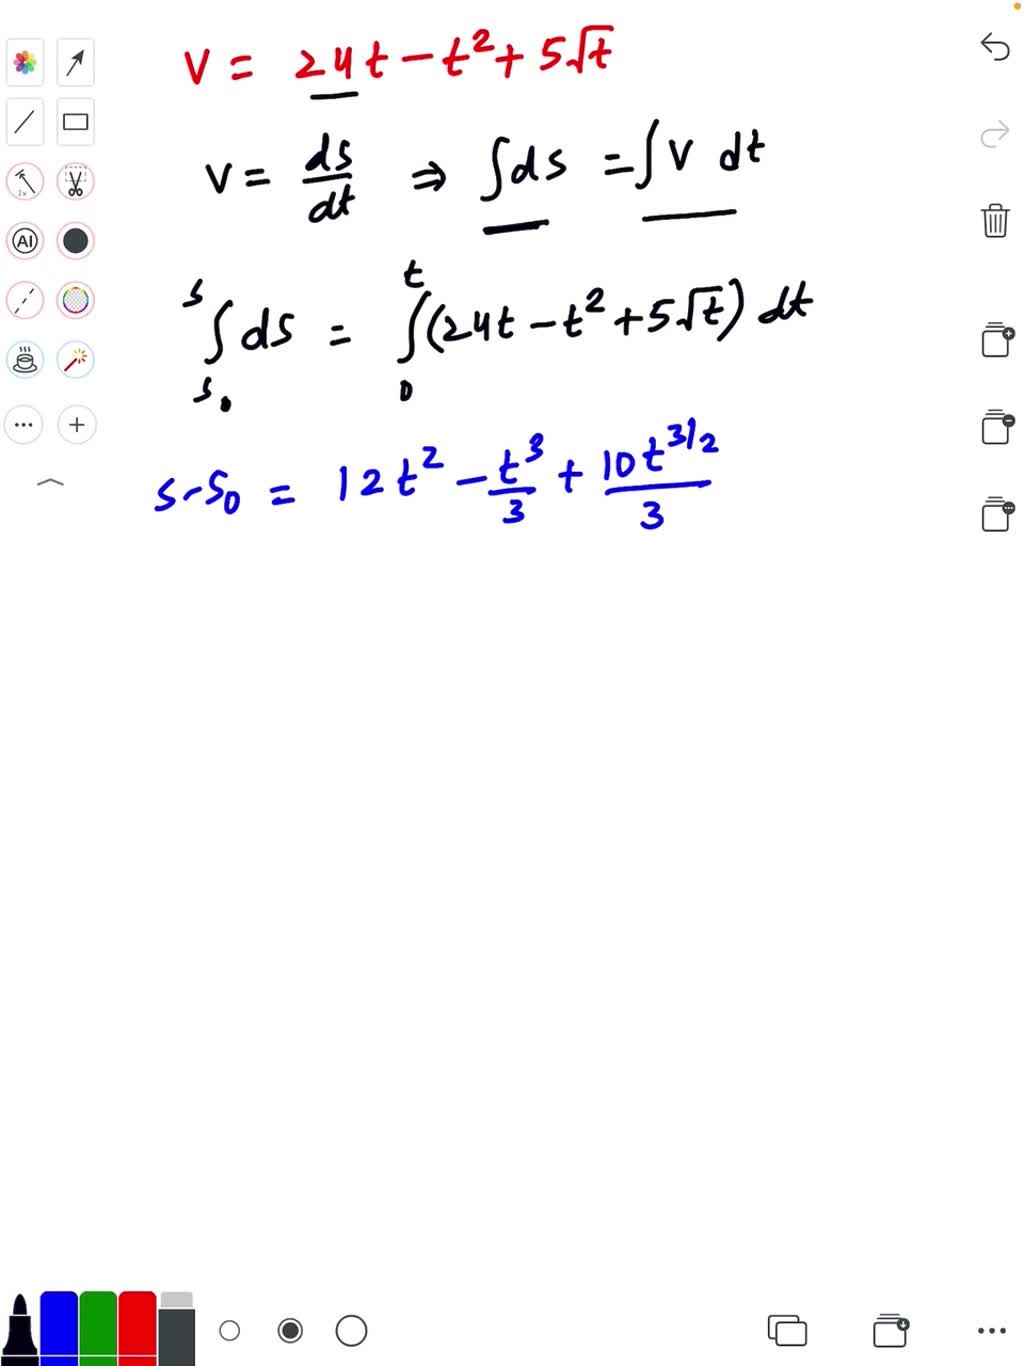 V = 24t - t² + 5√t
V = ds/dt ⇒ ∫ds = ∫V dt
s∫s₀ ds = t∫0 (24t - t² + 5√t) dt
s - s₀ = 12t² - t³/3 + 10t^3/2/3
2x
AI